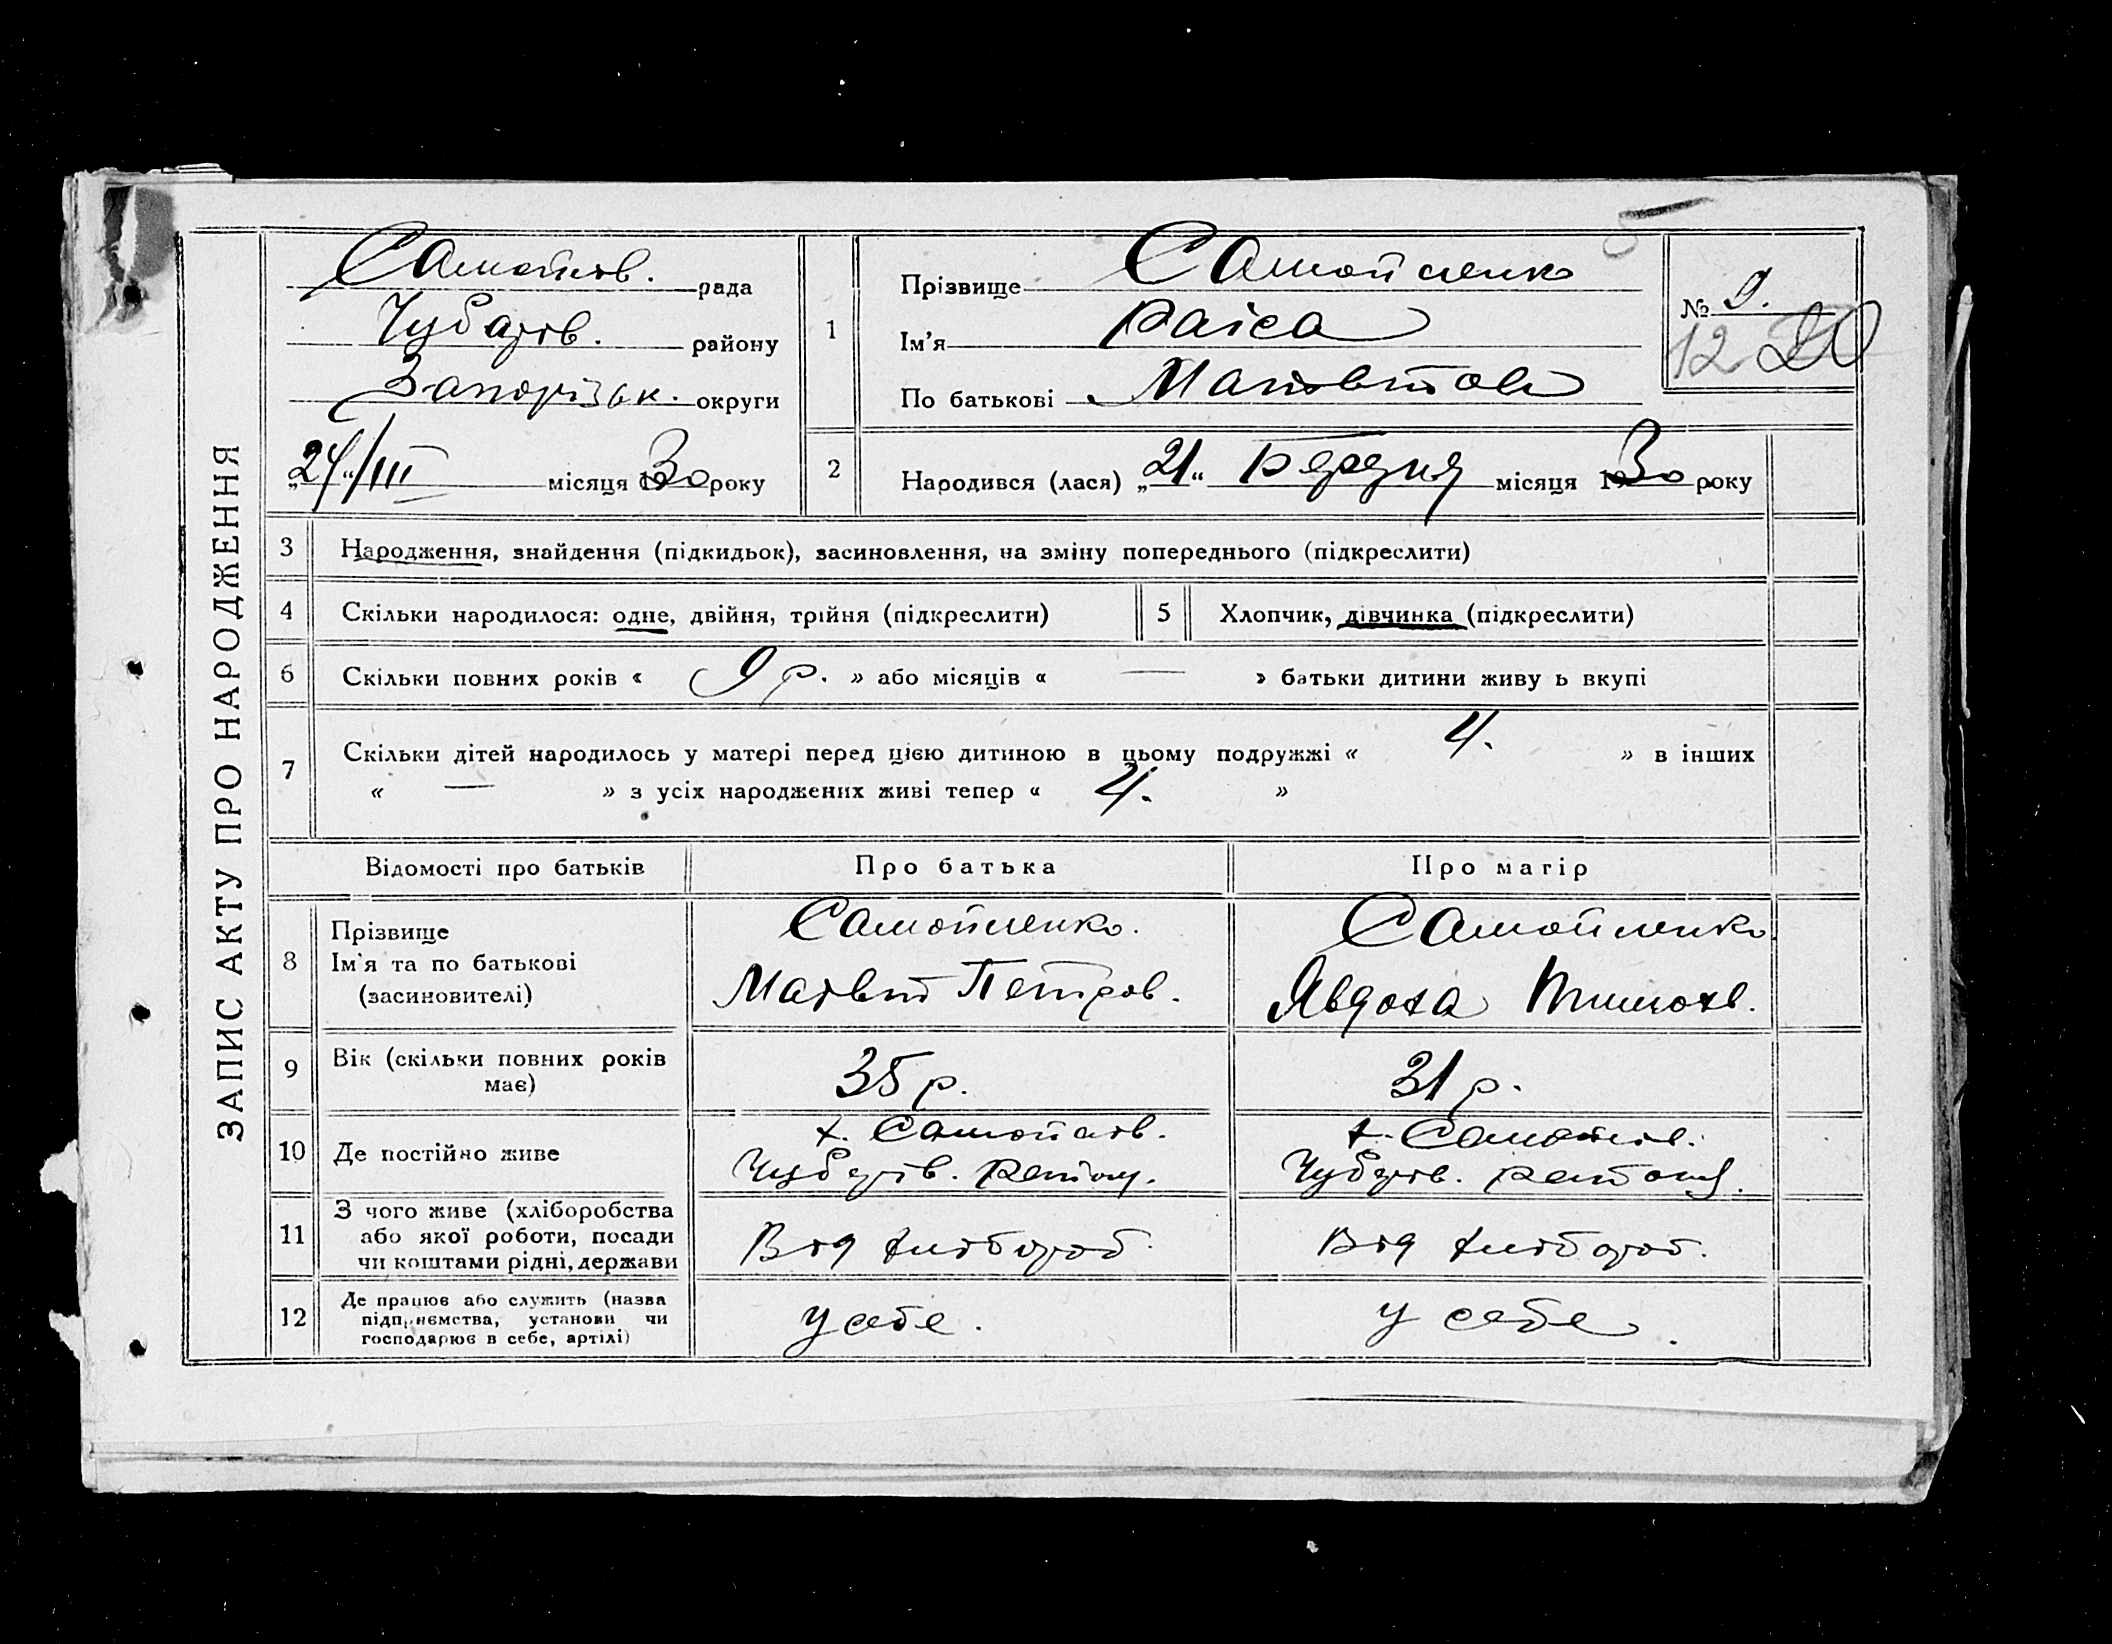 ЗАПИС АКТУ ПРО НАРОДЖЕННЯ
Самойлів. рада
Чубарів. району
Запорізьк. округи
„24“/III місяця 1930 року
1
Прізвище Самойленко
Ім'я Раіса
По батькові
№ 9.
12
2
Народився (лася) „21“ Березня місяця 1930 року
3 Народження, знайдення (підкидьок), засиновлення, на зміну попереднього (підкреслити)
4 Скільки народилося: одне, двійня, трійня (підкреслити)
5 Хлопчик, дівчинка (підкреслити)
6 Скільки повних років « 9 р. » або місяців « — » батьки дитини живу ь вкупі
7 Скільки дітей народилось у матері перед цією дитиною в цьому подружжі « 4. » в інших
« — » з усіх народжених живі тепер « 4. »
Відомості про батьків Про батька Про матір
8 Прізвище
Ім'я та по батькові
(засиновителі)
Самойленко.
Матвій Петров.
Самойленко
Явдоха Тимохв.
9 Вік (скільки повних років
має)
35 р.
31 р.
10 Де постійно живе
х. Самойлів.
Чубарів. району.
х. Самойлів.
Чубарів. району.
11 З чого живе (хліборобства
або якої роботи, посади
чи коштами рідні, держави
Від хлібороб.
Від хлібороб.
12 Де працює або служить (назва
підприємства, установи чи
господарює в себе, артілі)
у себе.
у себе.